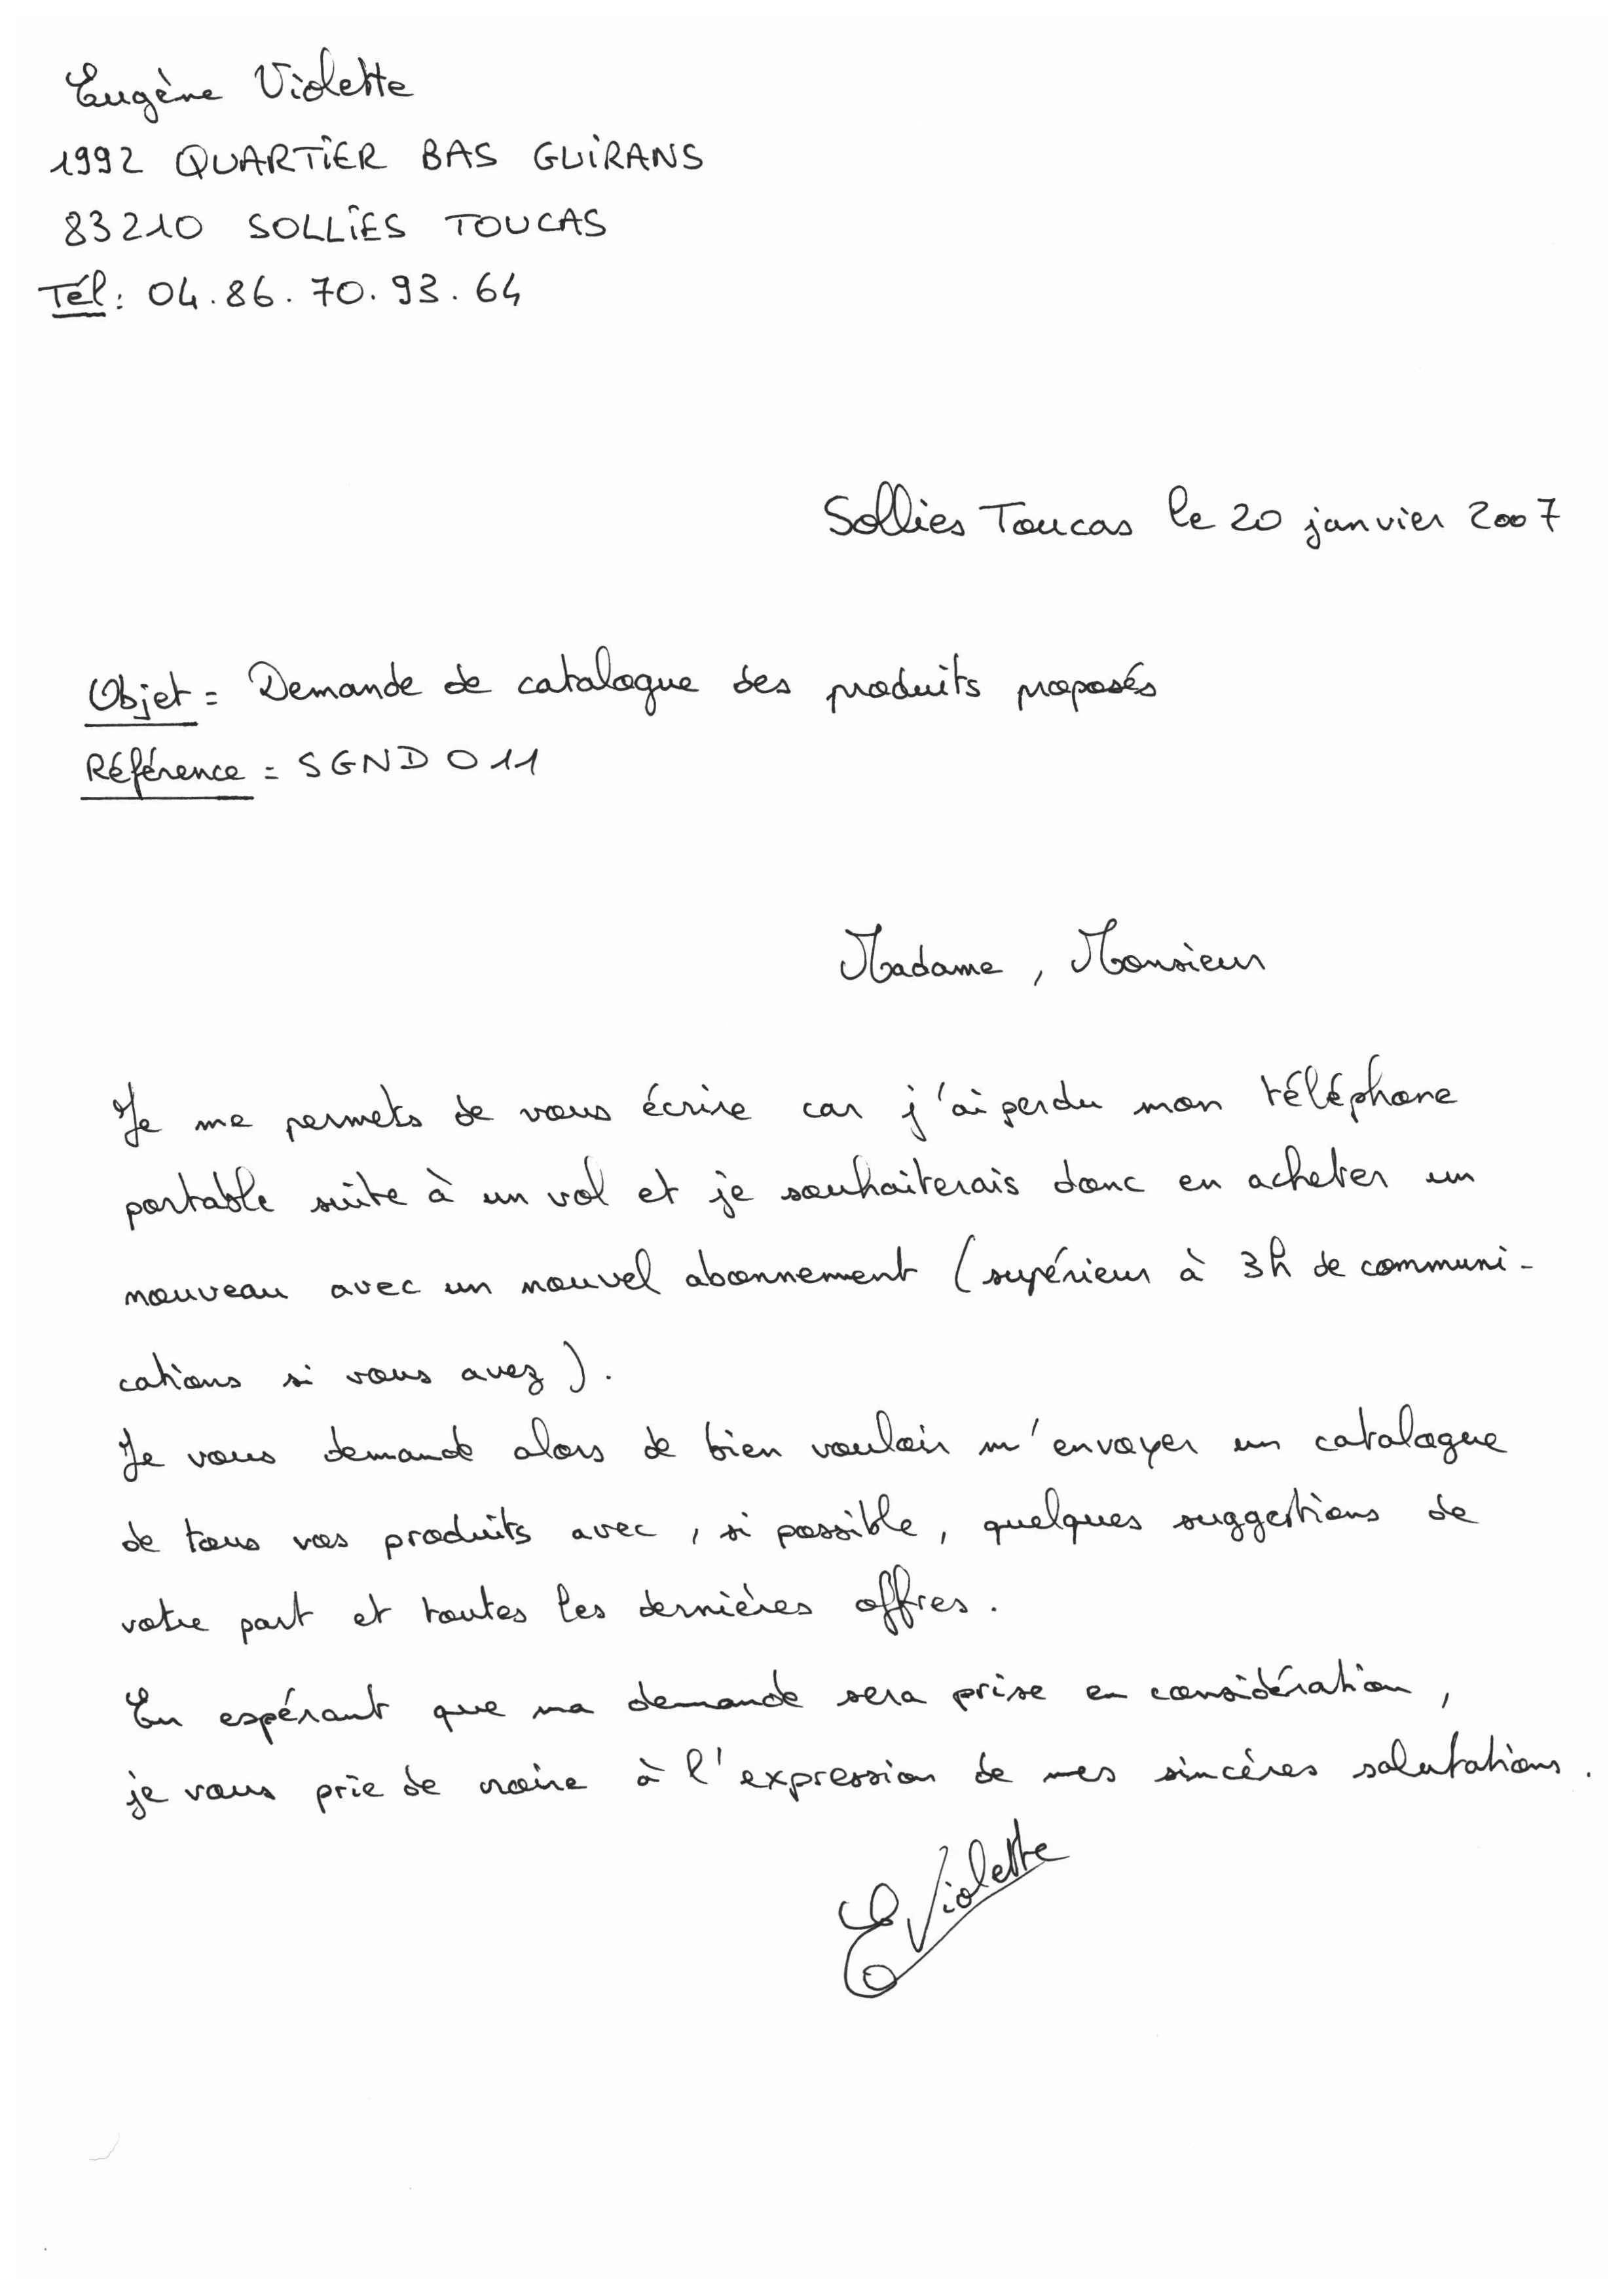 Eugène Violette
1992 QUARTIER BAS GUIRANS
83210 SOLLIES TOUCAS
Tél: 04.86.70.93.64
Sollies Toucas le 20 janvier 2007
Objet = Demande de catalogue des produits proposés
Référence = SGND011
Madame, Monsieur
Je me permets de vous écrire car j'ai perdu mon téléphone
portable suite à un vol et je souhaiterais donc en acheter un
nouveau avec un nouvel abonnement (supérieur à 3h de communi-
cations si vous avez).
Je vous demande alors de bien vouloir m'envoyer un catalogue
de tous vos produits avec, si possible, quelques suggestions de
votre part et toutes les dernières offres.
En espérant que ma demande sera prise en considération,
je vous prie de croire à l'expression de mes sincères salutations.
E Violette